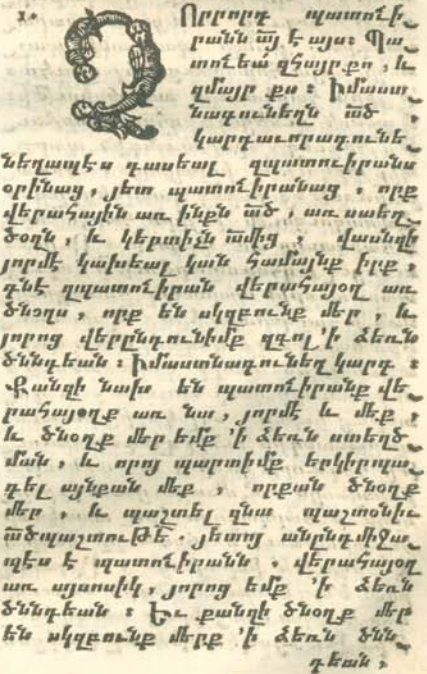 Չ Որրորդ պատուի֊
րանն ա՟յ է այս։ Պա֊
տուեա՛ զհայր քո, և
զմայր քո։ Իմաստ֊
նագունեղն ա՟ծ
կարգաւորագունե֊
նեղապէս դասեալ զպատուիրանս
օրինաց, յետ պատուիրանաց, որք
վերահային առ ինքն ա՟ծ, առ ստեղ֊
ծօղն, և կերտիչն ա՟մից, վասնզի
յորմէ կախեալ կան համայնք իրք,
դնէ զպատուիրան վերահայօղ առ
ծնօղս, որք են սկզբունք մեր, և
յորոց վերընդունիմք զգոլ ՚ի ձեռն
ծննդեան։ Իմաստնագունեղ կարգ։
Քանզի նախ են պատուիրանք վե֊
րահայօղք առ նա, յորմէ և մեք,
և ծնօղք մեր եմք ՚ի ձեռն ստեղծ֊
ման, և որոյ պարտիմք երկրպա֊
գել այնքան մեք, որքան ծնօղք
մեր, և պաշտել զնա պաշտօնիւ
ա՟ծպաշտութե՟. յետոյ անընդմիջա֊
պէս է պատուիրանն, վերահայօղ
առ այնոսիկ, յորոց եմք ՚ի ձեռն
ծննդեան։ Եւ քանզի ծնօղք մեր
են սկզբունք մերք ՚ի ձեռն ծնն֊
դեան,